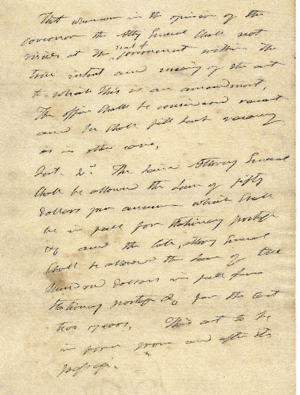 That whenever in the opinion of the
governor the Atty General shall not
reside at the seat of government within the
true intent and meaning of the act
to which this is an amendment,
the office shall be considered vacant
and he shall fill such vacancy
as in other cases,
Sect. 2d. The said Attorney General
shall be allowed the sum of fifty
dollars per annum which shall
be in full for stationary postage
&c and the late Attorney General
shall be allowed the sum of
hundred dollars in full for
stationary postage &c for the last
two years, This act to be
in force from and after its
passage.